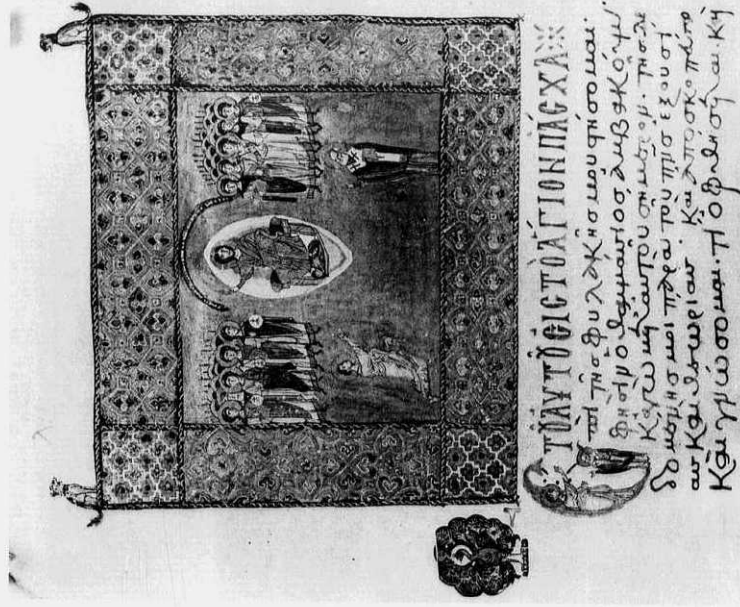 ΤΟΥ ΑΥΤΟΥ ΕΙΣ ΤΟ ΑΓΙΟΝ ΠΑΣΧΑ
Ἐπὶ τῆς φυλακῆς μου στήσομαι·
φησὶν ὁ θαυμάσιος ἀββακούμ·
κἀγὼ μετ' αὐτοῦ σήμερον τῆς
δομένης μοι παρὰ τοῦ
ας καὶ θεωρίας· καὶ ἀποσκοπεύ
καὶ γνώσομαι· τί ὀφθήσεται· καὶ